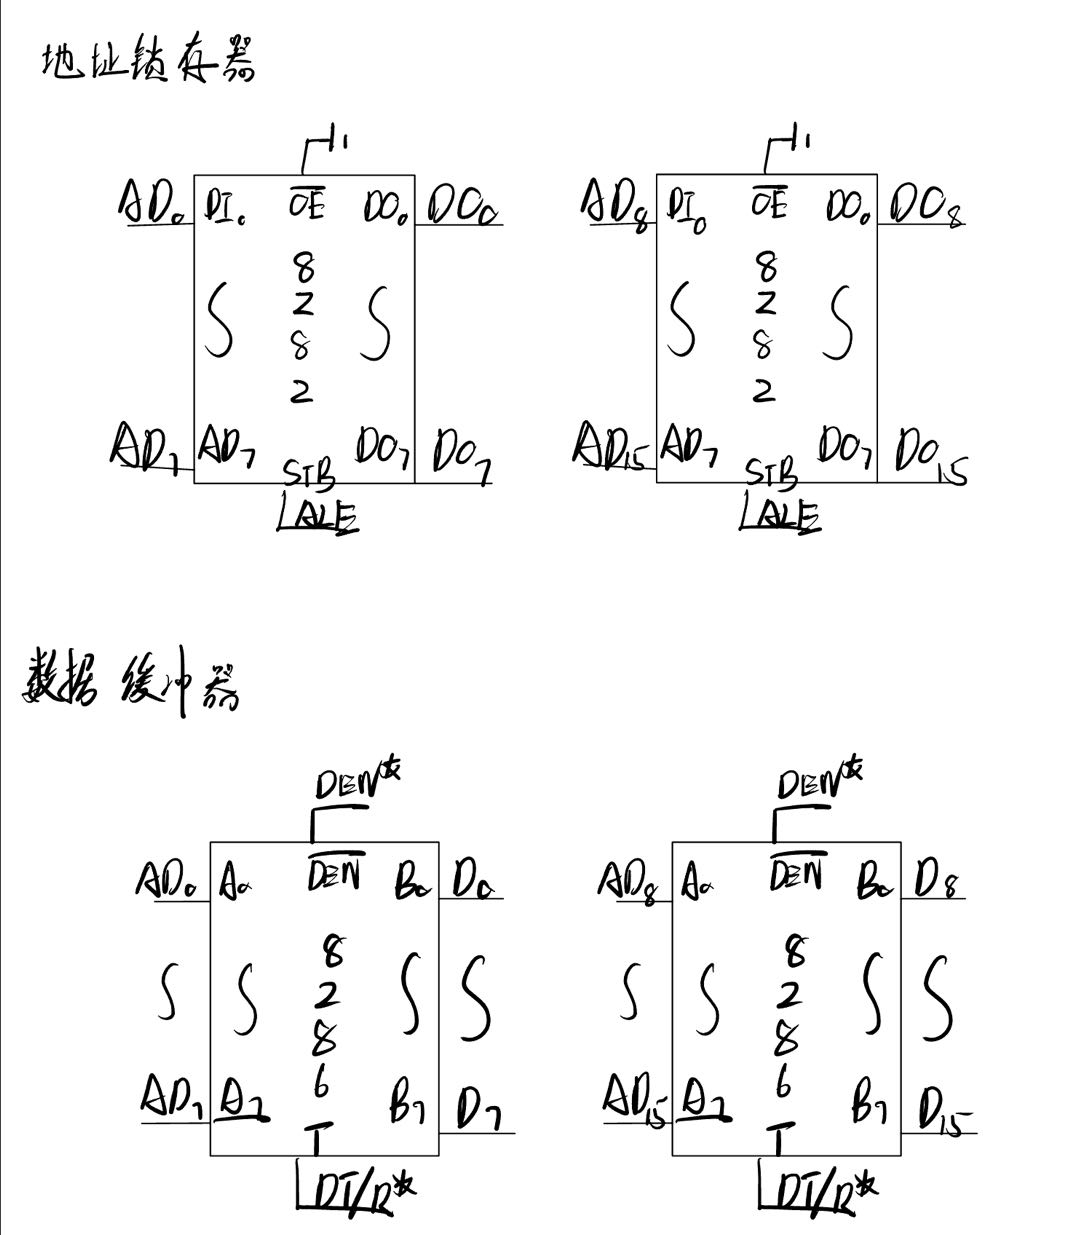 地址锁存器
AD₀ DI₀ O̅E̅ DO₀ DO₀
8
2
8
2
AD₇ AD₇ STB DO₇ DO₇
ALE
AD₈ DI₀ O̅E̅ DO₀ DO₈
8
2
8
2
AD₁₅ AD₇ STB DO₇ DO₁₅
ALE
数据缓冲器
DEN*
AD₀ A₀ D̅E̅N̅ B₀ D₀
8
2
8
6
AD₇ A₇ T B₇ D₇
DT/R*
DEN*
AD₈ A₀ D̅E̅N̅ B₀ D₈
8
2
8
6
AD₁₅ A₇ T B₇ D₁₅
DT/R*